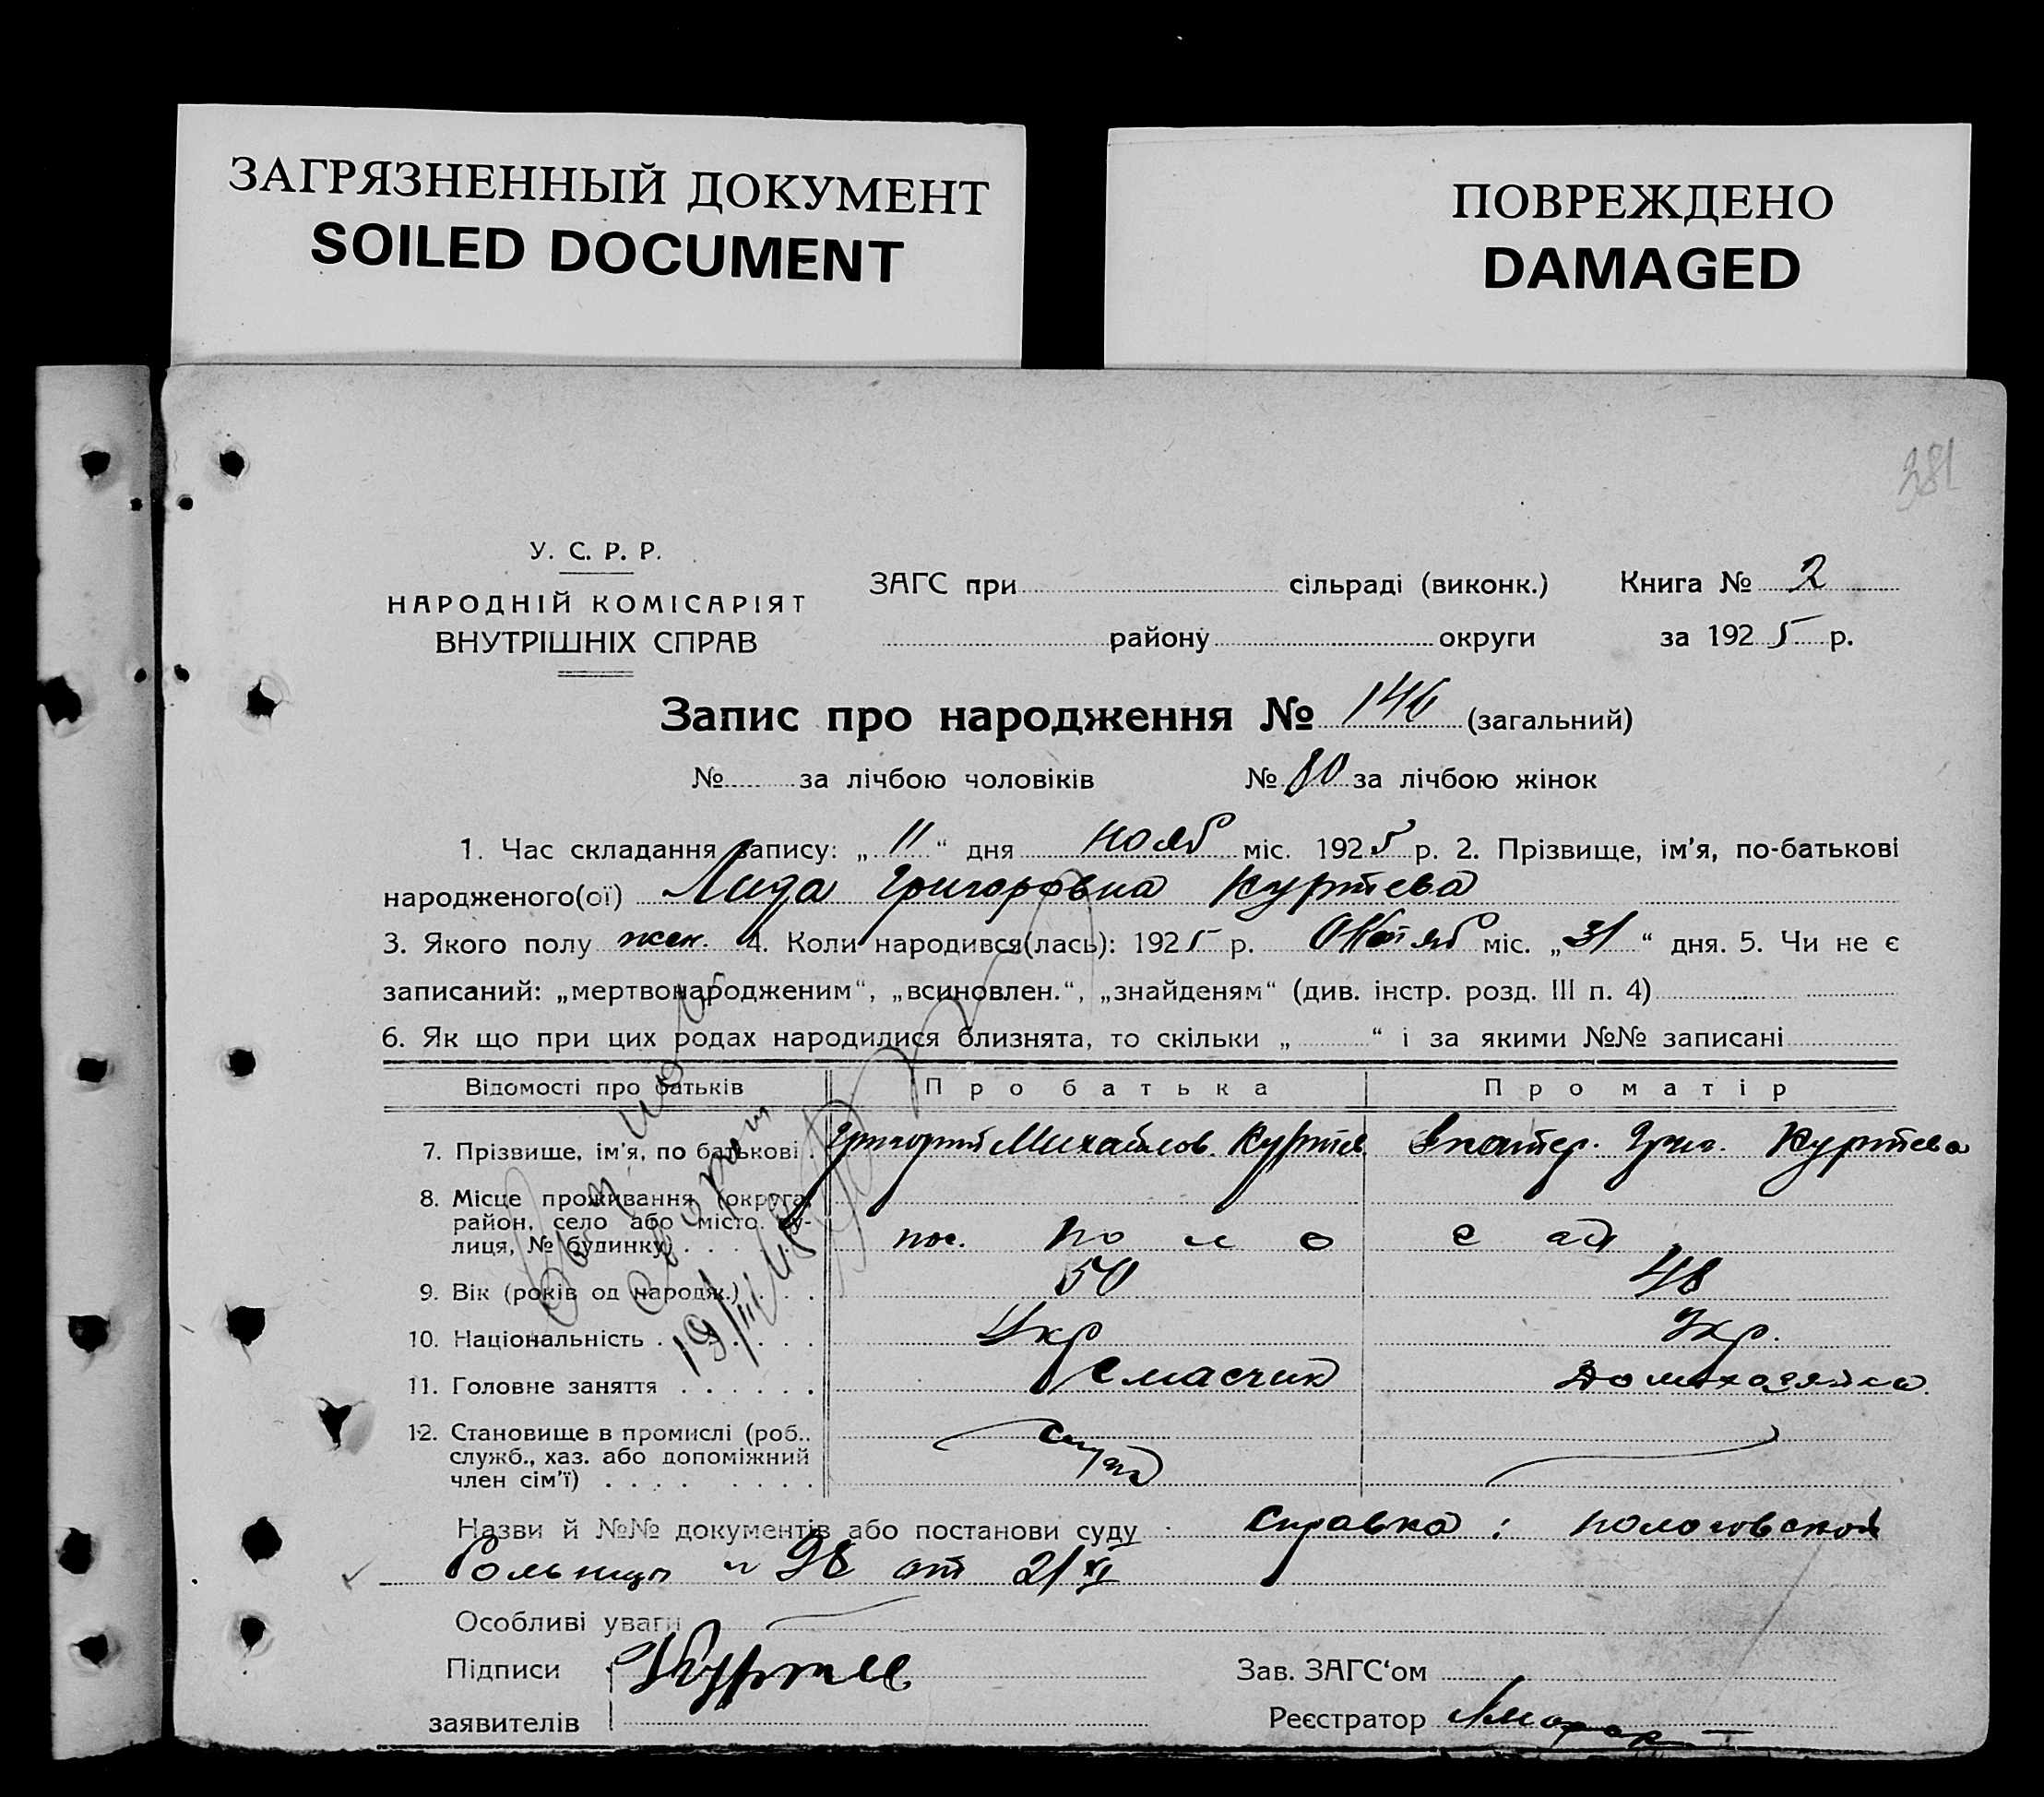 ЗАГРЯЗНЕННЫЙ ДОКУМЕНТ
SOILED DOCUMENT
ПОВРЕЖДЕНО
DAMAGED
381
У. С. Р. Р.
НАРОДНІЙ КОМІСАРІЯТ
ВНУТРІШНІХ СПРАВ
ЗАГС при сільраді (виконк.) Книга № 2
району округи за 1925 р.
Запис про народження № 146 (загальний)
№ за лічбою чоловіків № 80 за лічбою жінок
1. Час складання запису: „11“ дня нояб міс. 1925 р. 2. Прізвище, ім'я, по-батькові
народженого(ої) Лида Григоровна Куртева
3. Якого полу жен. 4. Коли народився(лась): 1925 р. Октяб міс. „31“ дня. 5. Чи не є
записаний: „мертвонародженим“, „всиновлен.“, „знайденям“ (див. інстр. розд. III п. 4)
6. Як що при цих родах народилися близнята, то скільки „ “ і за якими №№ записані
Відомості про батьків Про батька Про матір
7. Прізвище, ім'я, по батькові Григорий Михайлов. Куртев Екатер. Григ. Куртева
8. Місце проживання (округа,
район, село або місто, ву-
лиця, № будинку) пос.
9. Вік (років од народж.) 50 48
10. Національність Укр Укр.
11. Головне заняття Смасчик Домохозяйка
12. Становище в промислі (роб.,
служб., хаз. або допоміжний
член сім'ї) служ
Назви й №№ документів або постанови суду Справка: пологовской
больницы № 98 от 21/XI
Особливі уваги
Підписи Куртев Зав. ЗАГС‘ом
заявителів Реєстратор